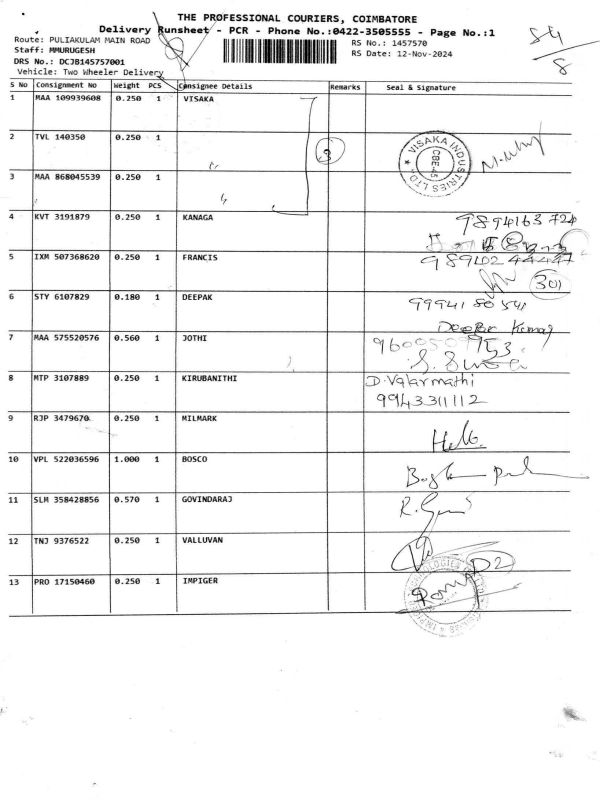 THE PROFESSIONAL COURIERS, COIMBATORE
Delivery Runsheet - PCR - Phone No.:0422-3505555 - Page No.:1
Route: PULIAKULAM MAIN ROAD
RS No.: 1457570
Staff: MMURUGESH
RS Date: 12-Nov-2024
DRS No.: DCJB145757001
Vehicle: Two Wheeler Delivery
S No Consignment No Weight PCS Consignee Details Remarks Seal & Signature
1 MAA 109939608 0.250 1 VISAKA
2 TVL 140350 0.250 1
VISAKA INDUSTRIES LTD. CBE-45
3 MAA 868045539 0.250 1
4 KVT 3191879 0.250 1 KANAGA 9894163724
5 IXM 507368620 0.250 1 FRANCIS
301
6 STY 6107829 0.180 1 DEEPAK 9994180541
Deepak Kumar
7 MAA 575520576 0.560 1 JOTHI
8 MTP 3107889 0.250 1 KIRUBANITHI D. Valarmathi
9943311112
9 RJP 3479670 0.250 1 MILMARK
10 VPL 522036596 1.000 1 BOSCO
11 SLM 358428856 0.570 1 GOVINDARAJ
12 TNJ 9376522 0.250 1 VALLUVAN
D2
13 PRO 17150460 0.250 1 IMPIGER